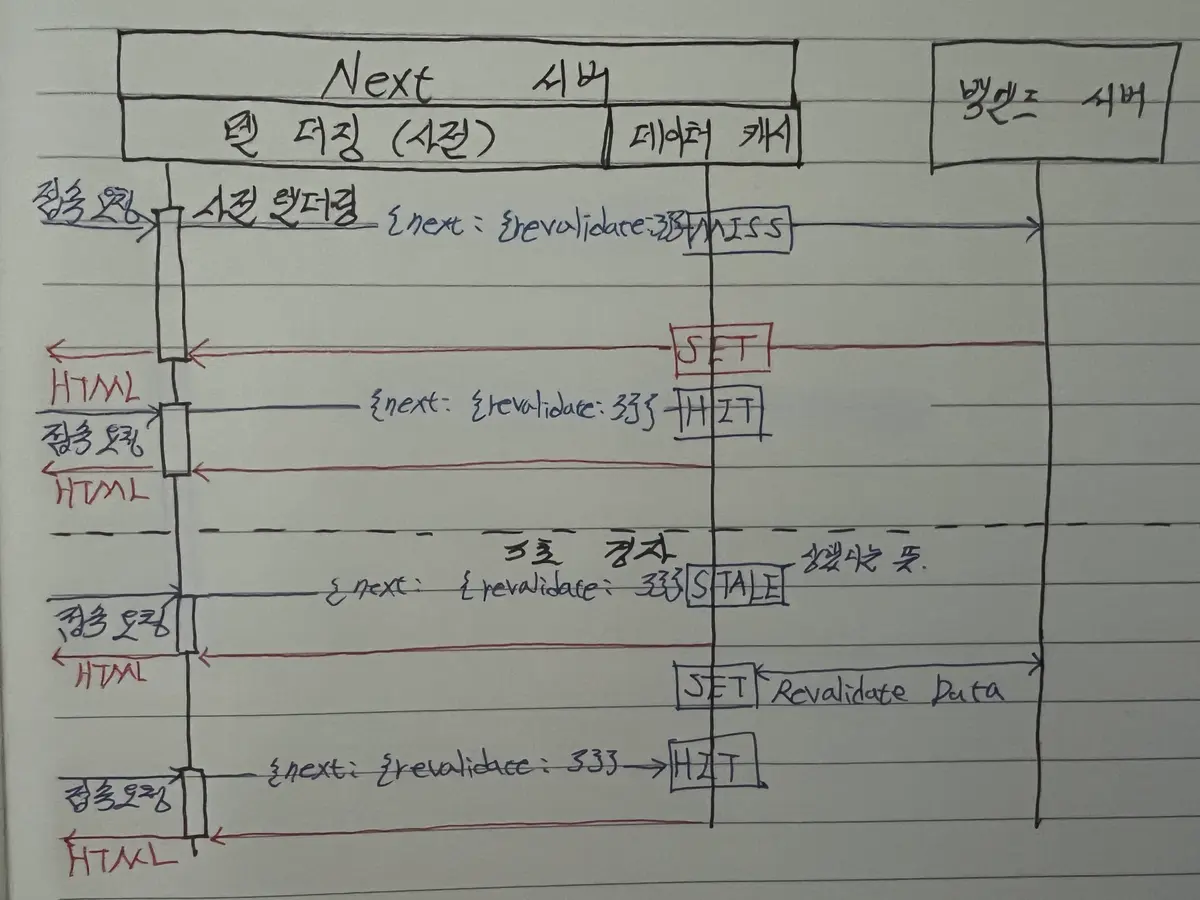 Next 서버
백엔드 서버
렌더링 (사전)
데이터 캐시
접속 요청
사전 렌더링
{next: {revalidate:3}}
MISS
SET
HTML
{next: {revalidate: 3}}
HIT
접속 요청
HTML
3초 경과
상했다는 뜻.
{next: {revalidate: 3}}
STALE
접속 요청
HTML
SET
Revalidate Data
{next: {revalidate: 3}}
HIT
접속 요청
HTML